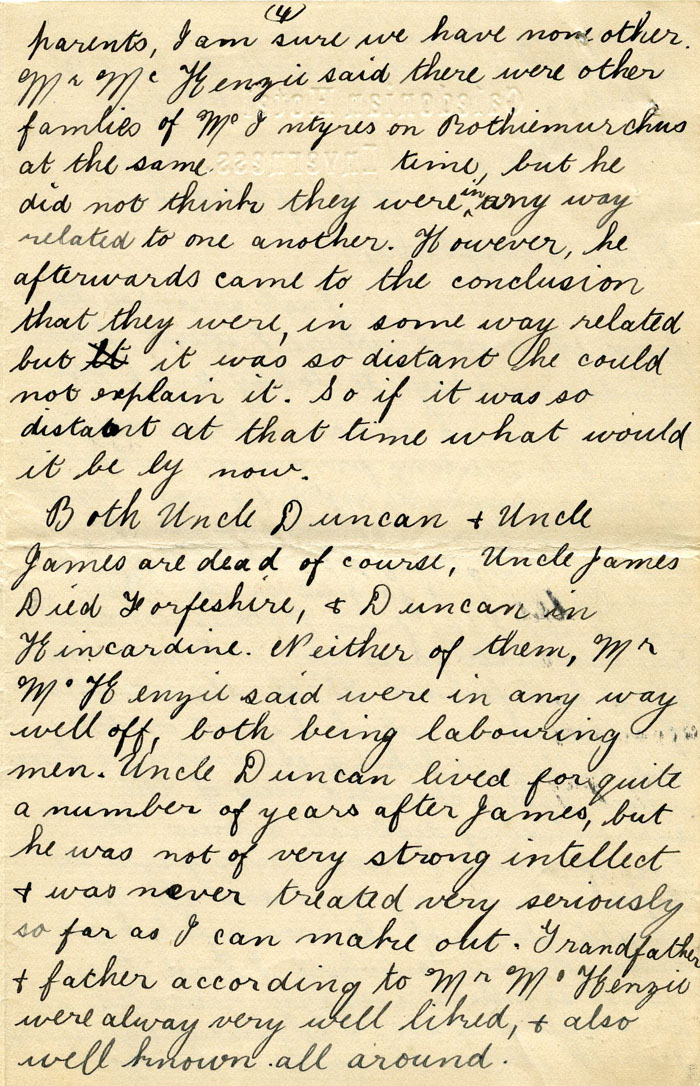 (4)
parents, I am sure we have none other.
Mr Mc Kenzie said there were other
famlies of Mc Intyres on Rothiemurchus
at the same time, but he
did not think they were in any way
related to one another. However, he
afterwards came to the conclusion
that they were, in some way related
but it was so distant he could
not explain it. So if it was so
distant at that time what would
it be by now.
Both Uncle Duncan & Uncle
James are dead of course, Uncle James
Died Forfeshire, & Duncan in
Kincardine. Neither of them, Mr
Mc Kenzie said were in any way
well off, both being labouring
men. Uncle Duncan lived for quite
a number of years after James, but
he was not of very strong intellect
& was never treated very seriously
so far as I can make out. Grandfather
& father according to Mr Mc Kenzie
were alway very well liked, & also
well known all around.